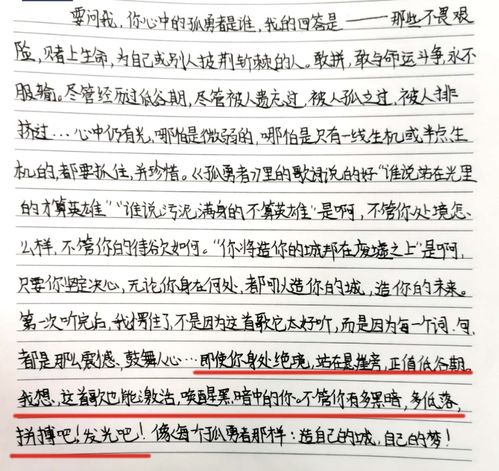 要问我,你心中的孤勇者是谁,我的回答是——那些不畏艰
险,赌上生命,为自己或别人披荆斩棘的人。敢拼,敢与命运斗争,永不
服输。尽管经历过低谷期,尽管被人遗忘过,被人孤立过,被人排
挤过…心中仍有光,哪怕是微弱的,哪怕是只有一线生机或半点生
机的,都要抓住,并珍惜。《孤勇者》里的歌词说的好“谁说站在光里
的才算英雄”“谁说污泥满身的不算英雄”是啊,不管你处境怎
么样,不管你的待欲如何。“你将造你的城邦在废墟之上”是啊,
只要你坚定决心,无论你身在何处,都可以造你的城,造你的未来。
第一次听完后,我愣住了,不是因为这首歌它太好听,而是因为每一个词、句
都是那么震憾、鼓舞人心…即使你身处绝境,站在悬撞旁,正值低谷期。
我想,这首歌也能激活,唤醒黑暗中的你。不管你有多黑暗,多低落,
拼搏吧!发光吧!像每个孤勇者那样:造自己的城,自己的梦!